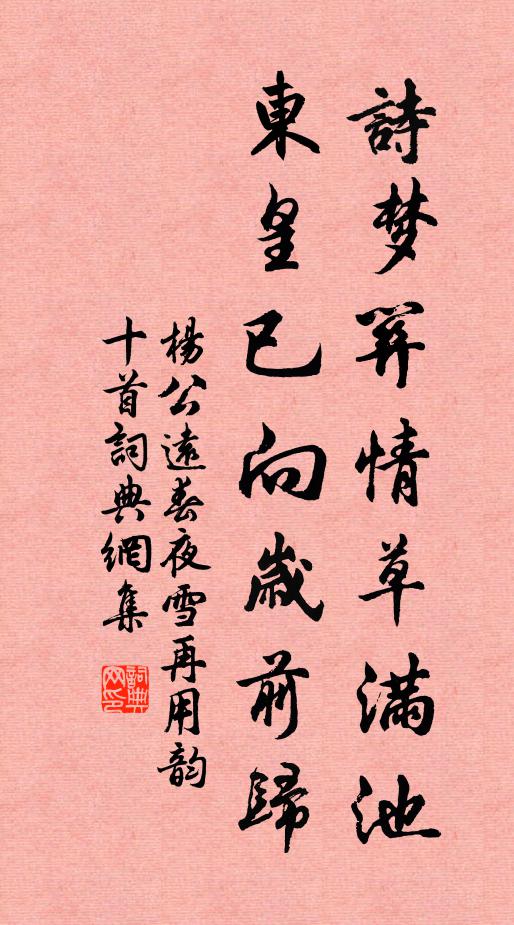 詩梦關情草滿池
東皇已向歲前歸
楊公遠春夜雪再用韵
十首詞典網集
詞典网印